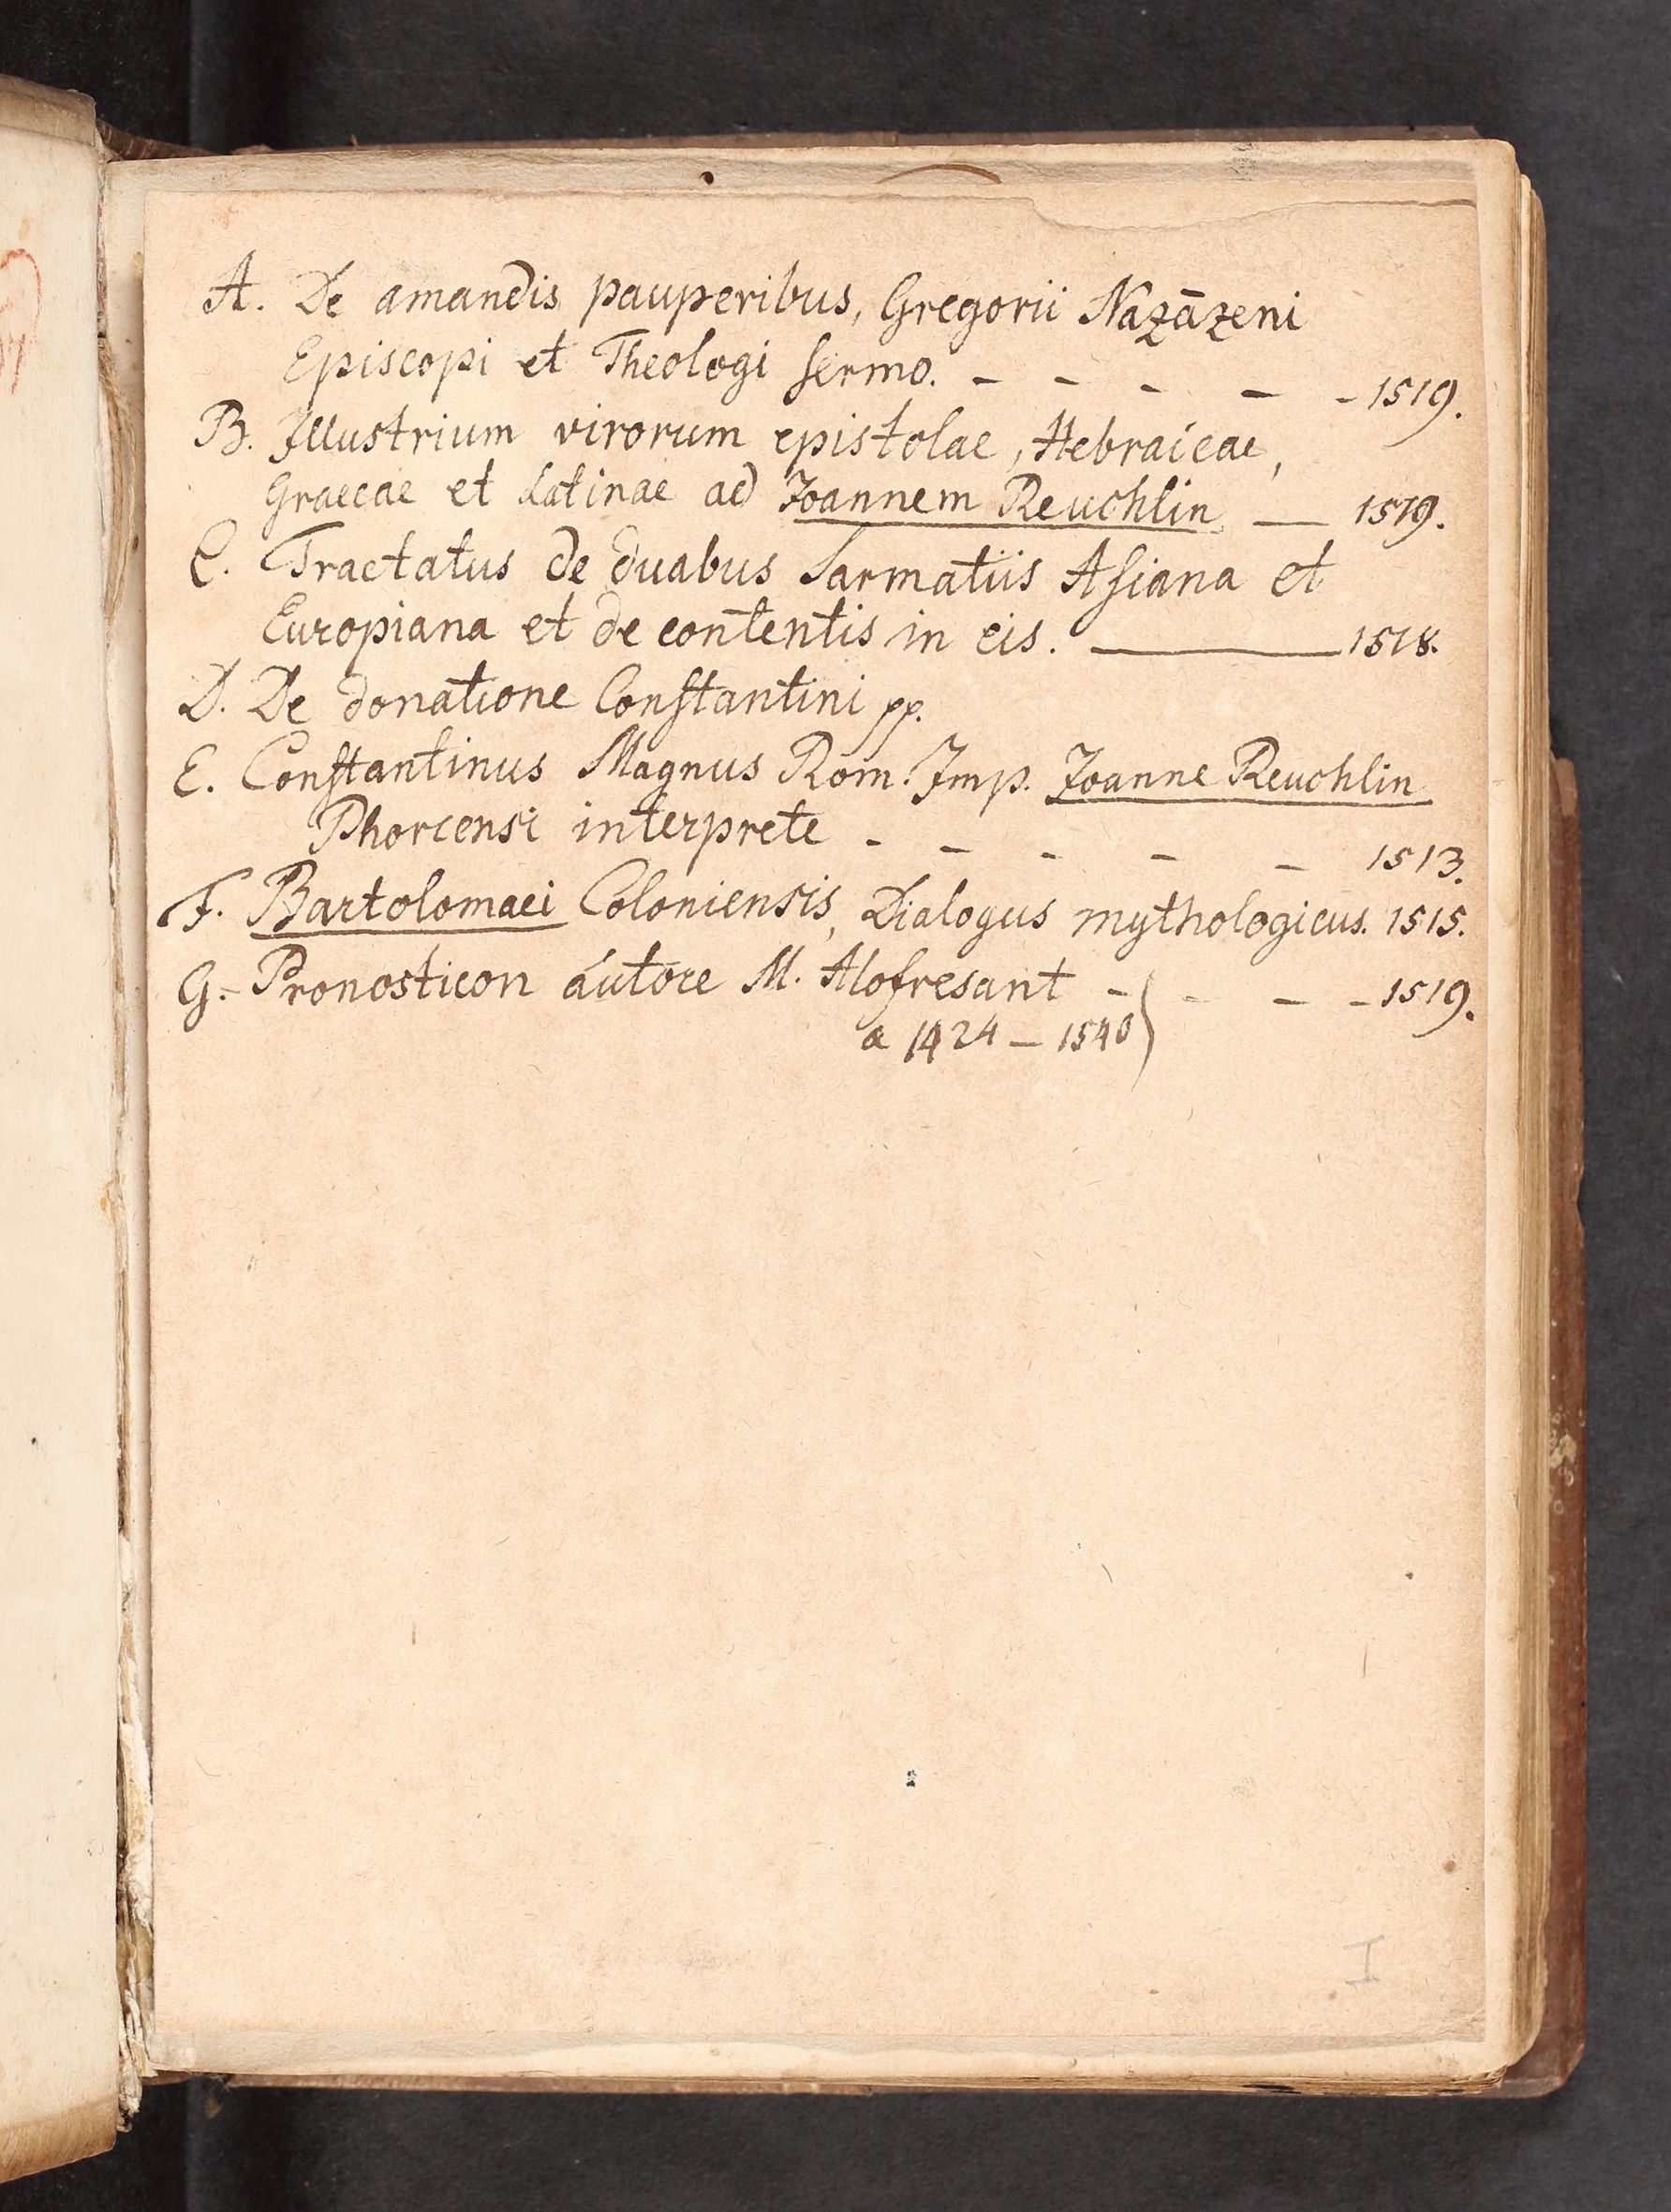 A. De amandis pauperibus, Gregorii Nazāzeni
Episcopi et Theologi sermo. - - - - - 1519.
B. Illustrium virorum epistolae, Hebraicae,
Graecae et Latinae ad Joannem Reuchlin — 1519.
C. Tractatus de duabus Sarmatiis Asiana et
Europiana et de contentis in eis. — 1518.
D. De donatione Constantini pp.
E. Constantinus Magnus Rom. Imp. Joanne Reuchlin
Phorcensi interprete - - - - - 1513.
F. Bartolomaei Coloniensis, Dialogus mythologicus. 1515.
G. Pronosticon autore M. Alofresant - - - - 1519.
a 1424 - 1540
I